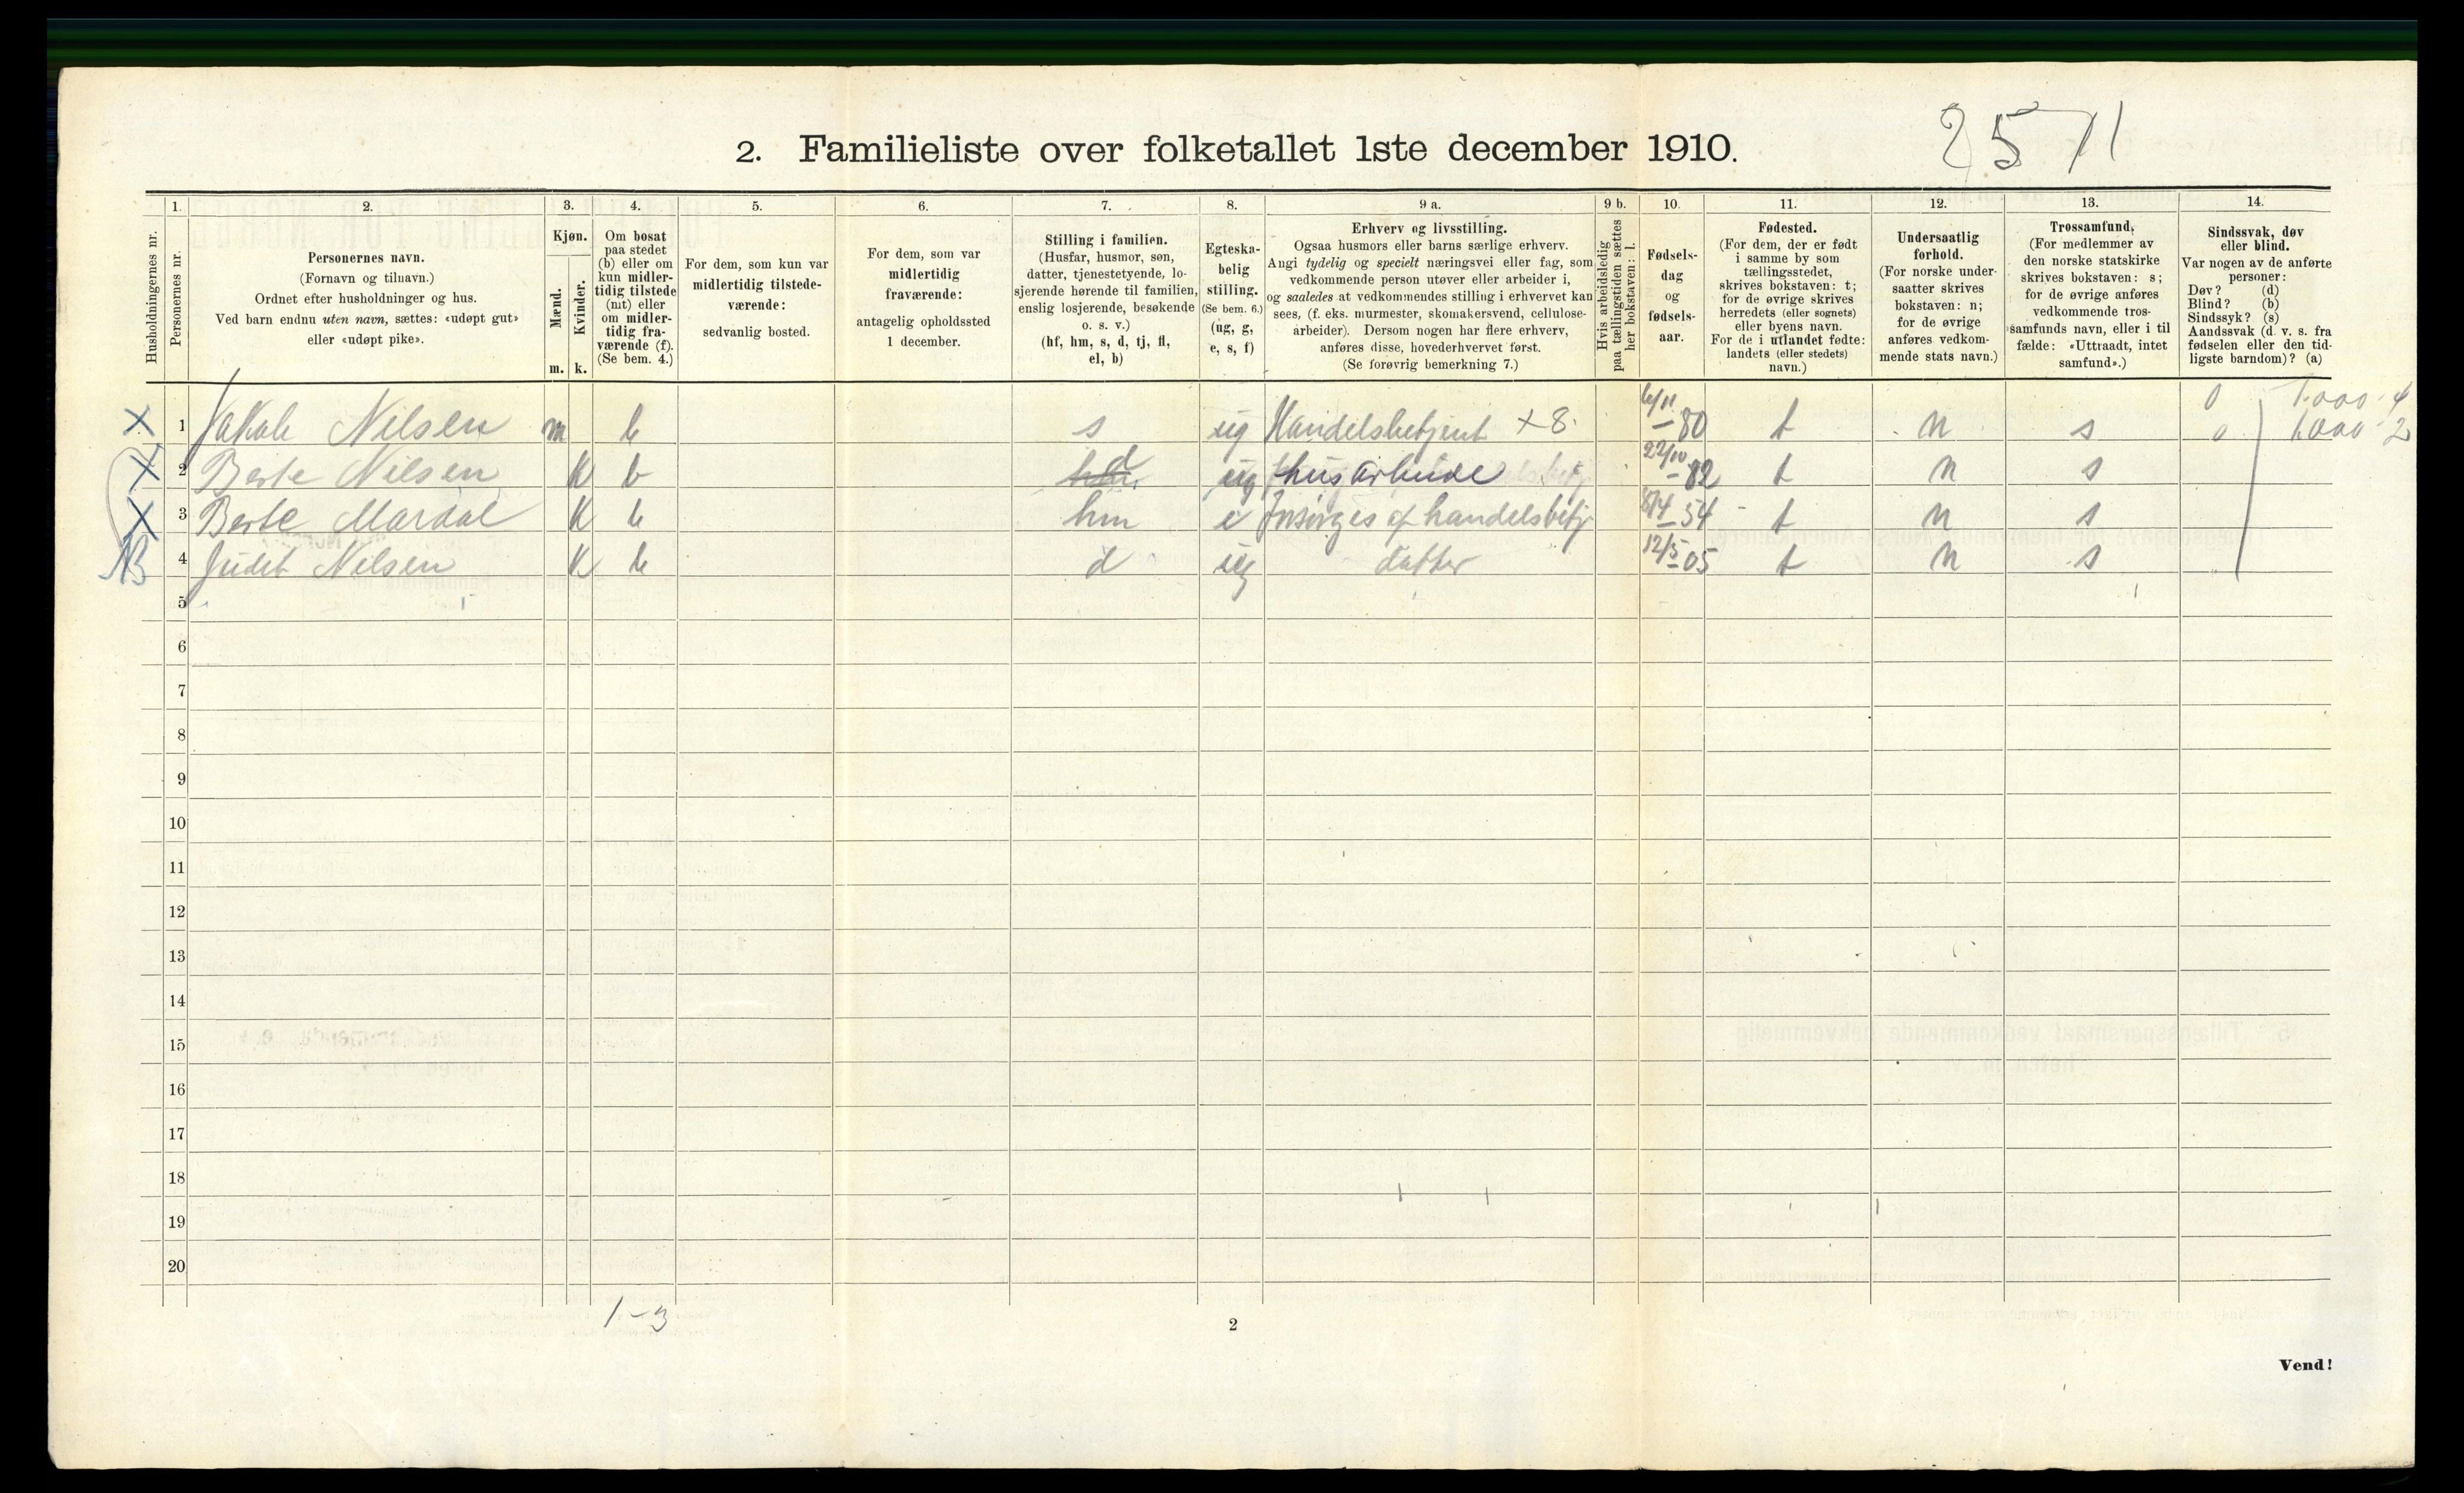 2571
2. Familieliste over folketallet 1ste december 1910.
Husholdningernes nr.
1.
Personernes nr.
2.
Personernes navn.
(Fornavn og tilnavn.)
Ordnet efter husholdninger og hus.
Ved barn endnu uten navn, sættes: «udøpt gut»
eller «udøpt pike».
3.
Kjøn.
Mænd.
Kvinder.
m. k.
4.
Om bosat
paa stedet
(b) eller om
kun midler-
tidig tilstede
(mt) eller
om midler-
tidig fra-
værende (f).
(Se bem. 4.)
5.
For dem, som kun var
midlertidig tilstede-
værende:
sedvanlig bosted.
6.
For dem, som var
midlertidig
fraværende:
antagelig opholdssted
1 december.
7.
Stilling i familien.
(Husfar, husmor, søn,
datter, tjenestetyende, lo-
sjerende hørende til familien,
enslig losjerende, besøkende
o. s. v.)
(hf, hm, s, d, tj, fl,
el, b)
8.
Egteska-
belig
stilling.
(Se bem. 6.)
(ug, g,
e, s, f)
9 a.
Erhverv og livsstilling.
Ogsaa husmors eller barns særlige erhverv.
Angi tydelig og specielt næringsvei eller fag, som
vedkommende person utøver eller arbeider i,
og saaledes at vedkommendes stilling i erhvervet kan
sees, (f. eks. murmester, skomakersvend, cellulose-
arbeider). Dersom nogen har flere erhverv,
anføres disse, hovederhvervet først.
(Se forøvrig bemerkning 7.)
9 b.
Hvis arbeidsledig
paa tællingstiden sættes
her bokstaven: l.
10.
Fødsels-
dag
og
fødsels-
aar.
11.
Fødested.
(For dem, der er født
i samme by som
tællingsstedet,
skrives bokstaven: t;
for de øvrige skrives
herredets (eller sognets)
eller byens navn.
For de i utlandet fødte:
landets (eller stedets)
navn.)
12.
Undersaatlig
forhold.
(For norske under-
saatter skrives
bokstaven: n;
for de øvrige
anføres vedkom-
mende stats navn.)
13.
Trossamfund.
(For medlemmer av
den norske statskirke
skrives bokstaven: s;
for de øvrige anføres
vedkommende tros-
samfunds navn, eller i til
fælde: «Uttraadt, intet
samfund».)
14.
Sindssvak, døv
eller blind.
Var nogen av de anførte
personer:
Døv? (d)
Blind? (b)
Sindssyk? (s)
Aandssvak (d. v. s. fra
fødselen eller den tid-
ligste barndom)? (a)
0 1.000 - 4
X 1 Jakob Nilsen m b s ug Handelsbetjent +8. 6/11 - 80 t n s 0 1.000 - 2
X 2 Berte Nilsen k b hm d ug husarbeide 22/10 - 82 t n s
X 3 Berte Mardal k b hm e Forsørges af handelsbetj 54 t n s
NB 4 Judit Nilsen k b d ug datter 12/5 - 05 t n s
5
6
7
8
9
10
11
12
13
14
15
16
17
18
19
20
1-3
2
Vend!